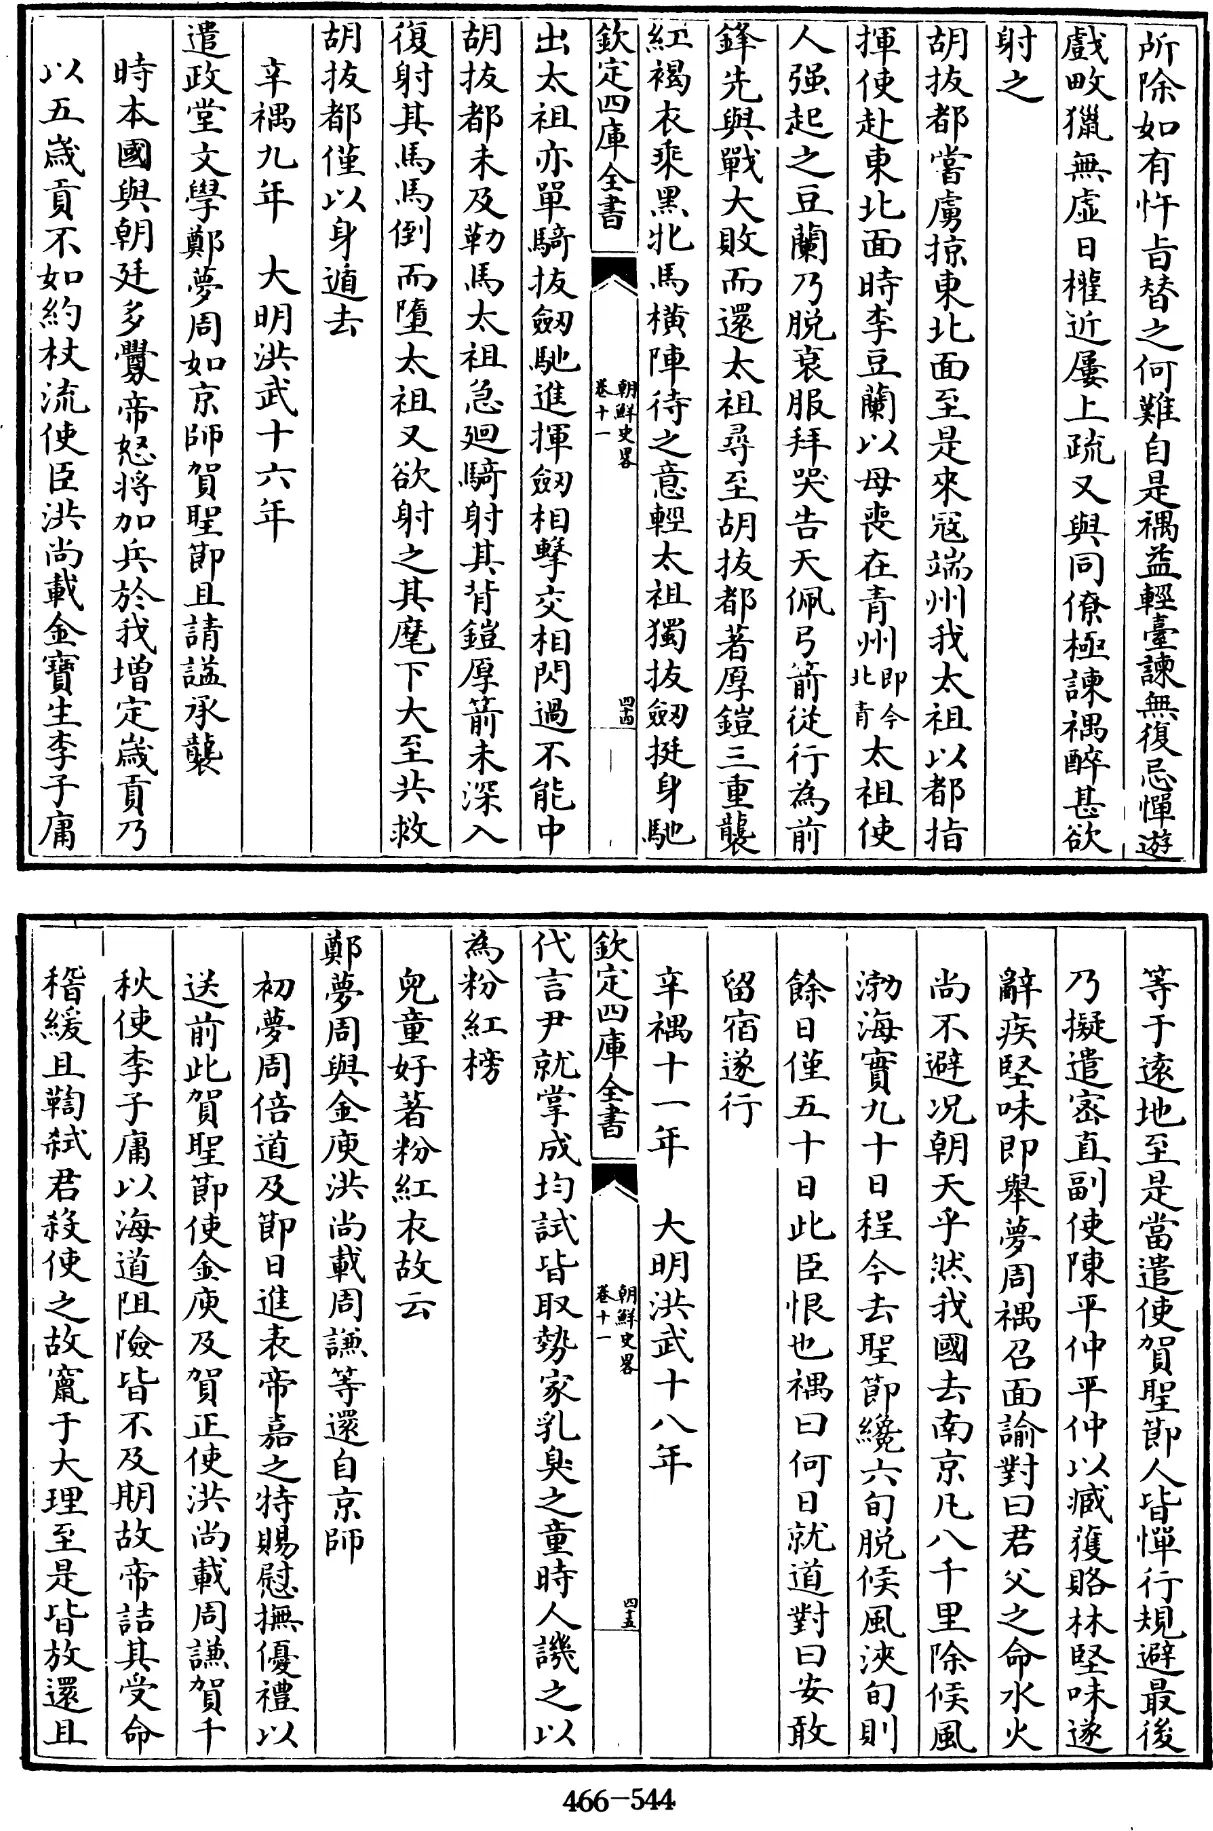 所除如有忤旨替之何難自是禑益輕臺諫無復忌憚遊
戲畋獵無虛日權近屢上疏又與同僚極諫禑醉甚欲
射之
胡拔都嘗虜掠東北面至是來寇端州我太祖以都指
揮使赴東北面時李豆蘭以母喪在青州即今北青太祖使
人强起之豆蘭乃脫衰服拜哭告天佩弓箭從行為前
鋒先與戰大敗而還太祖尋至胡拔都著厚鎧三重襲
紅褐衣乘黑牝馬橫陣待之意輕太祖獨拔劒挺身馳
欽定四庫全書
朝鮮史畧
卷十一
四十四
出太祖亦單騎拔劒馳進揮劒相擊交相閃過不能中
胡拔都未及勒馬太祖急廻騎射其背鎧厚箭未深入
復射其馬馬倒而墮太祖又欲射之其麾下大至共救
胡拔都僅以身遁去
辛禑九年 大明洪武十六年
遣政堂文學鄭夢周如京師賀聖節且請諡承襲
時本國與朝廷多釁帝怒將加兵於我增定歲貢乃
以五歲貢不如約杖流使臣洪尚載金寶生李子庸
等于遠地至是當遣使賀聖節人皆憚行規避最後
乃擬遣密直副使陳平仲平仲以臧獲賂林堅味遂
辭疾堅味即舉夢周禑召面諭對曰君父之命水火
尚不避况朝天乎然我國去南京凡八千里除候風
渤海實九十日程今去聖節纔六旬脫候風浹旬則
餘日僅五十日此臣恨也禑曰何日就道對曰安敢
留宿遂行
辛禑十一年 大明洪武十八年
欽定四庫全書
朝鮮史畧
卷十一
四十五
代言尹就掌成均試皆取勢家乳臭之童時人譏之以
為粉紅榜
兒童好著粉紅衣故云
鄭夢周與金庾洪尚載周謙等還自京師
初夢周倍道及節日進表帝嘉之特賜慰撫優禮以
送前此賀聖節使金庾及賀正使洪尚載周謙賀千
秋使李子庸以海道阻險皆不及期故帝詰其受命
稽緩且鞫弒君殺使之故竄于大理至是皆放還且
466-544